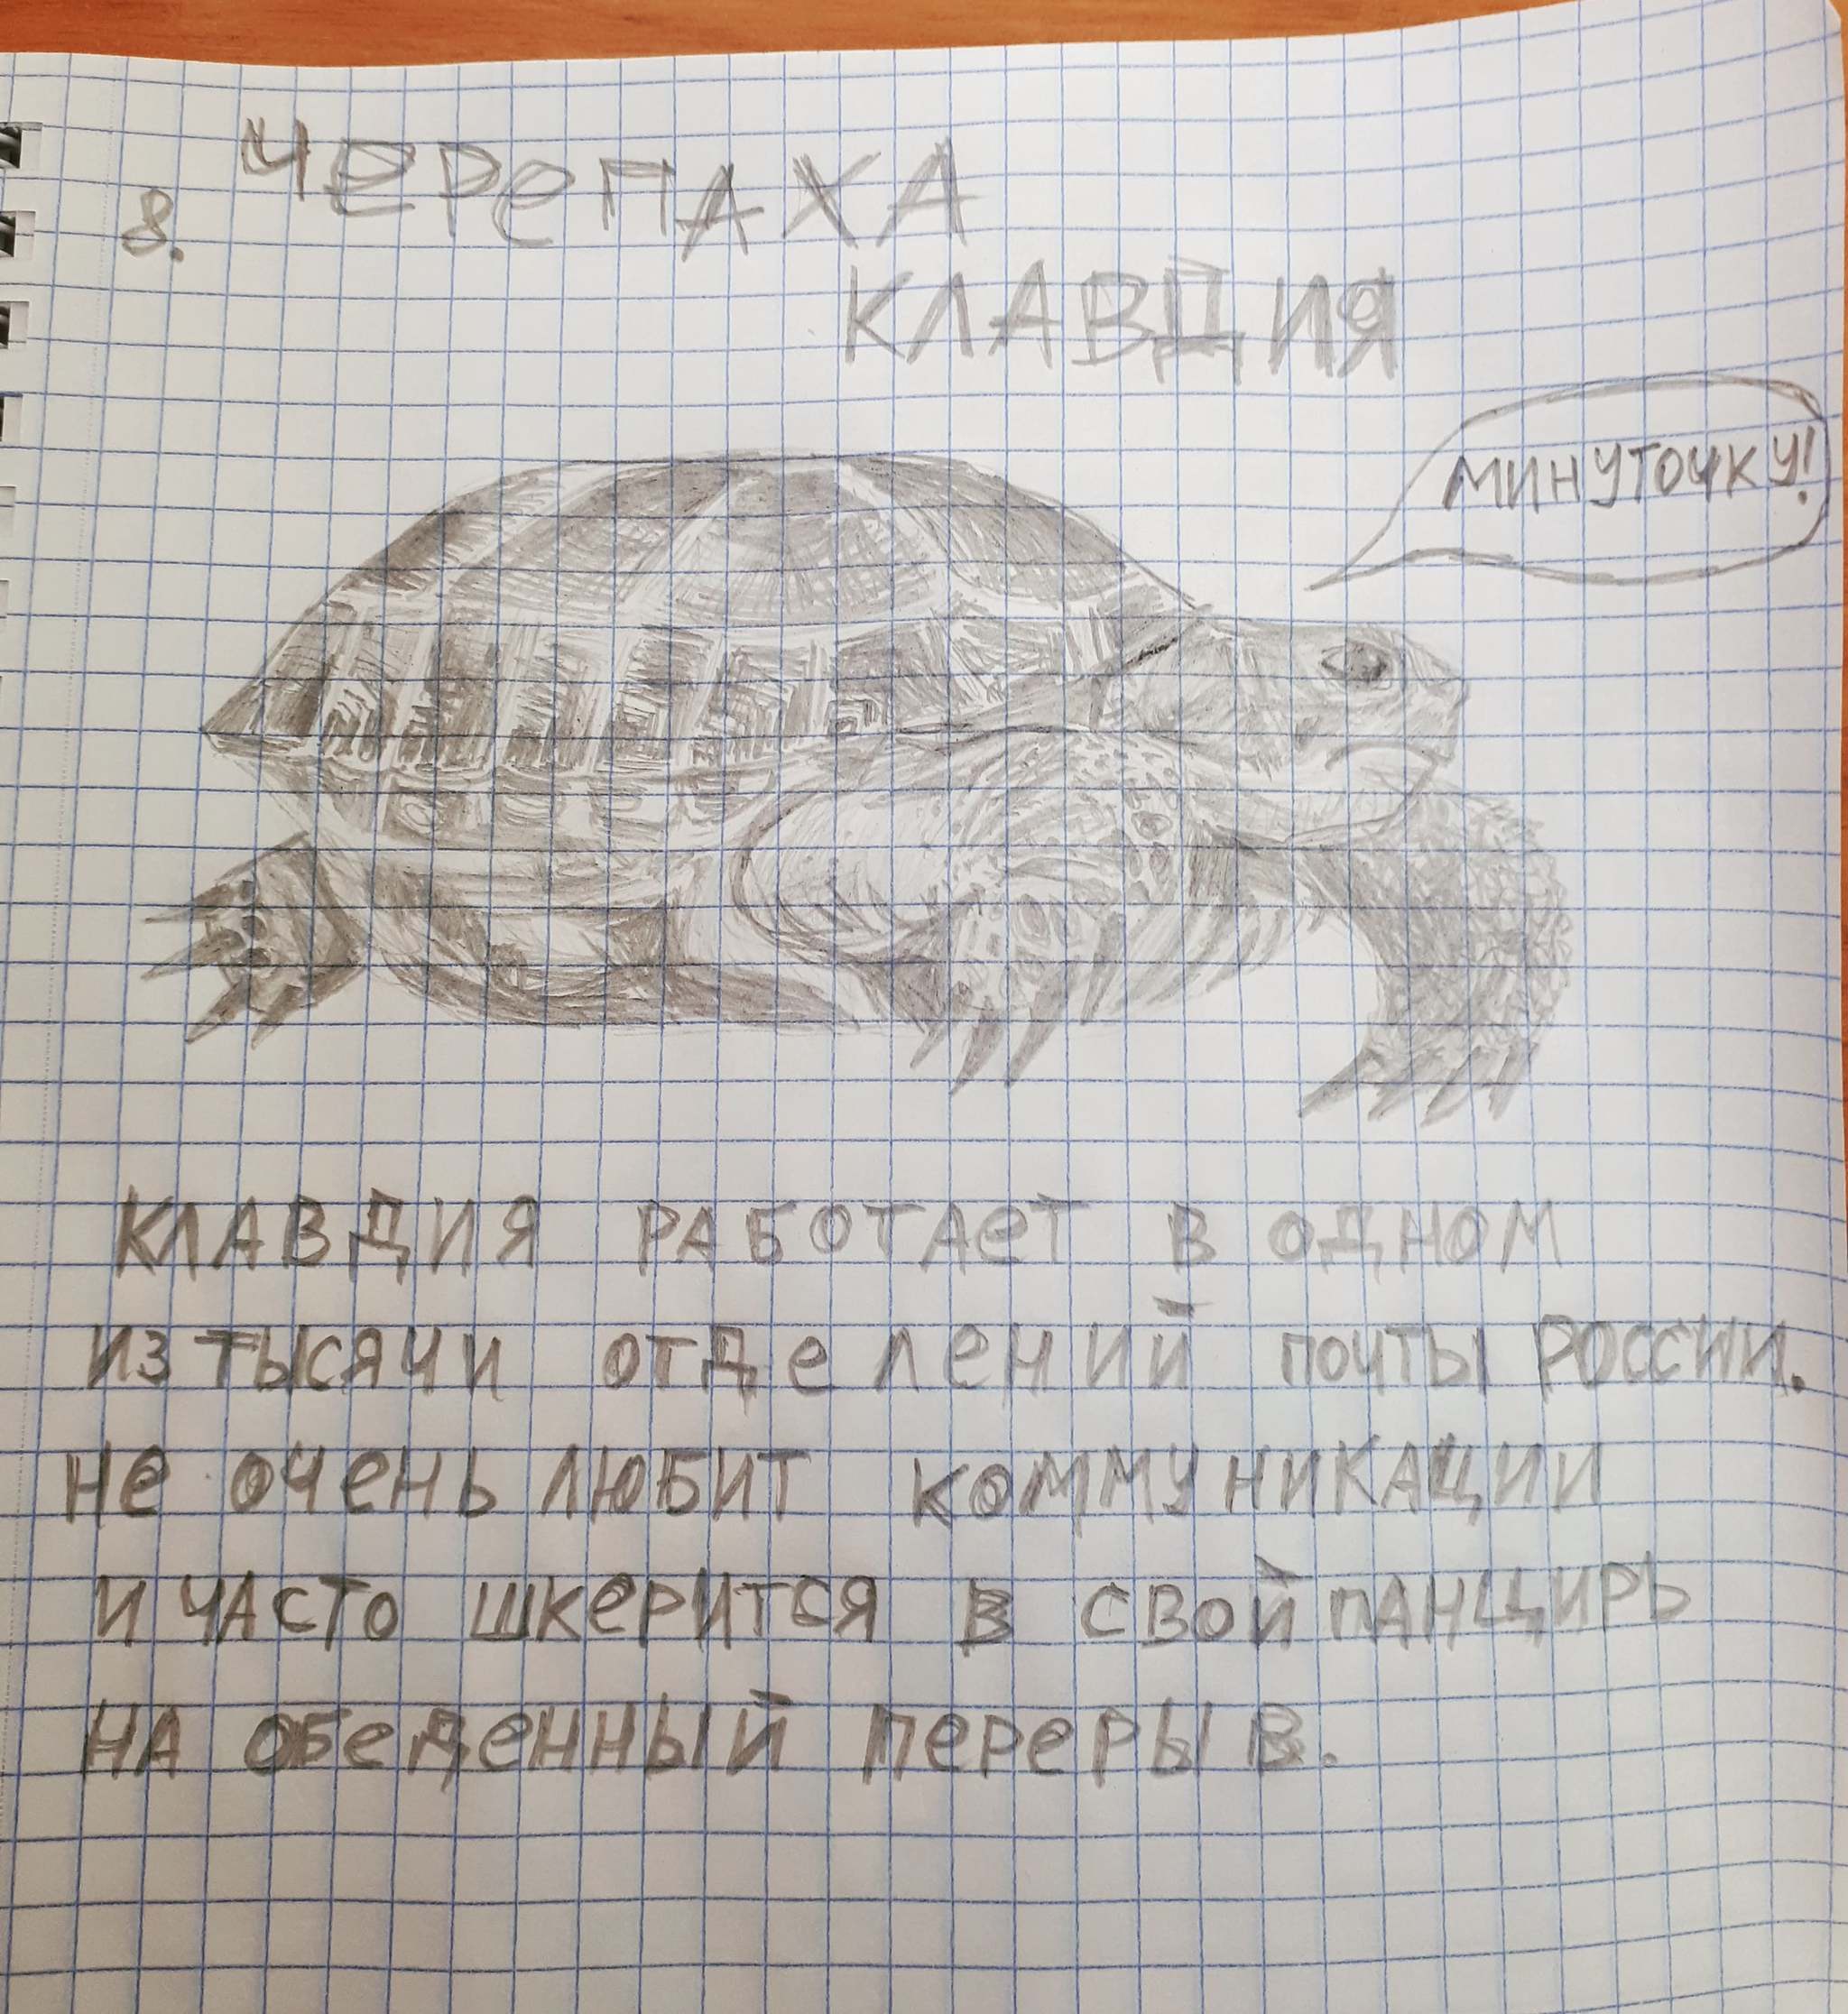 8. ЧЕРЕПАХА
КЛАВДИЯ
МИНУТОЧКУ!
КЛАВДИЯ РАБОТАЕТ В ОДНОМ
ИЗ ТЫСЯЧИ ОТДЕЛЕНИЙ ПОЧТЫ РОССИИ.
НЕ ОЧЕНЬ ЛЮБИТ КОММУНИКАЦИИ
И ЧАСТО ШКЕРИТСЯ В СВОЙ ПАНЦИРЬ
НА ОБЕДЕННЫЙ ПЕРЕРЫВ.